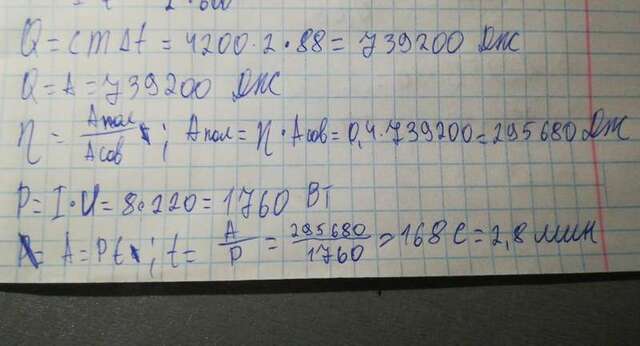 Q = cmΔt = 4200·2·88 = 739200 Дж
Q = A = 739200 Дж
η = Aпол / Aсов ; Aпол = η·Aсов = 0,4·739200 = 295680 Дж
P = I·U = 8·220 = 1760 Вт
A = Pt ; t = A / P = 295680 / 1760 = 168 с = 2,8 мин